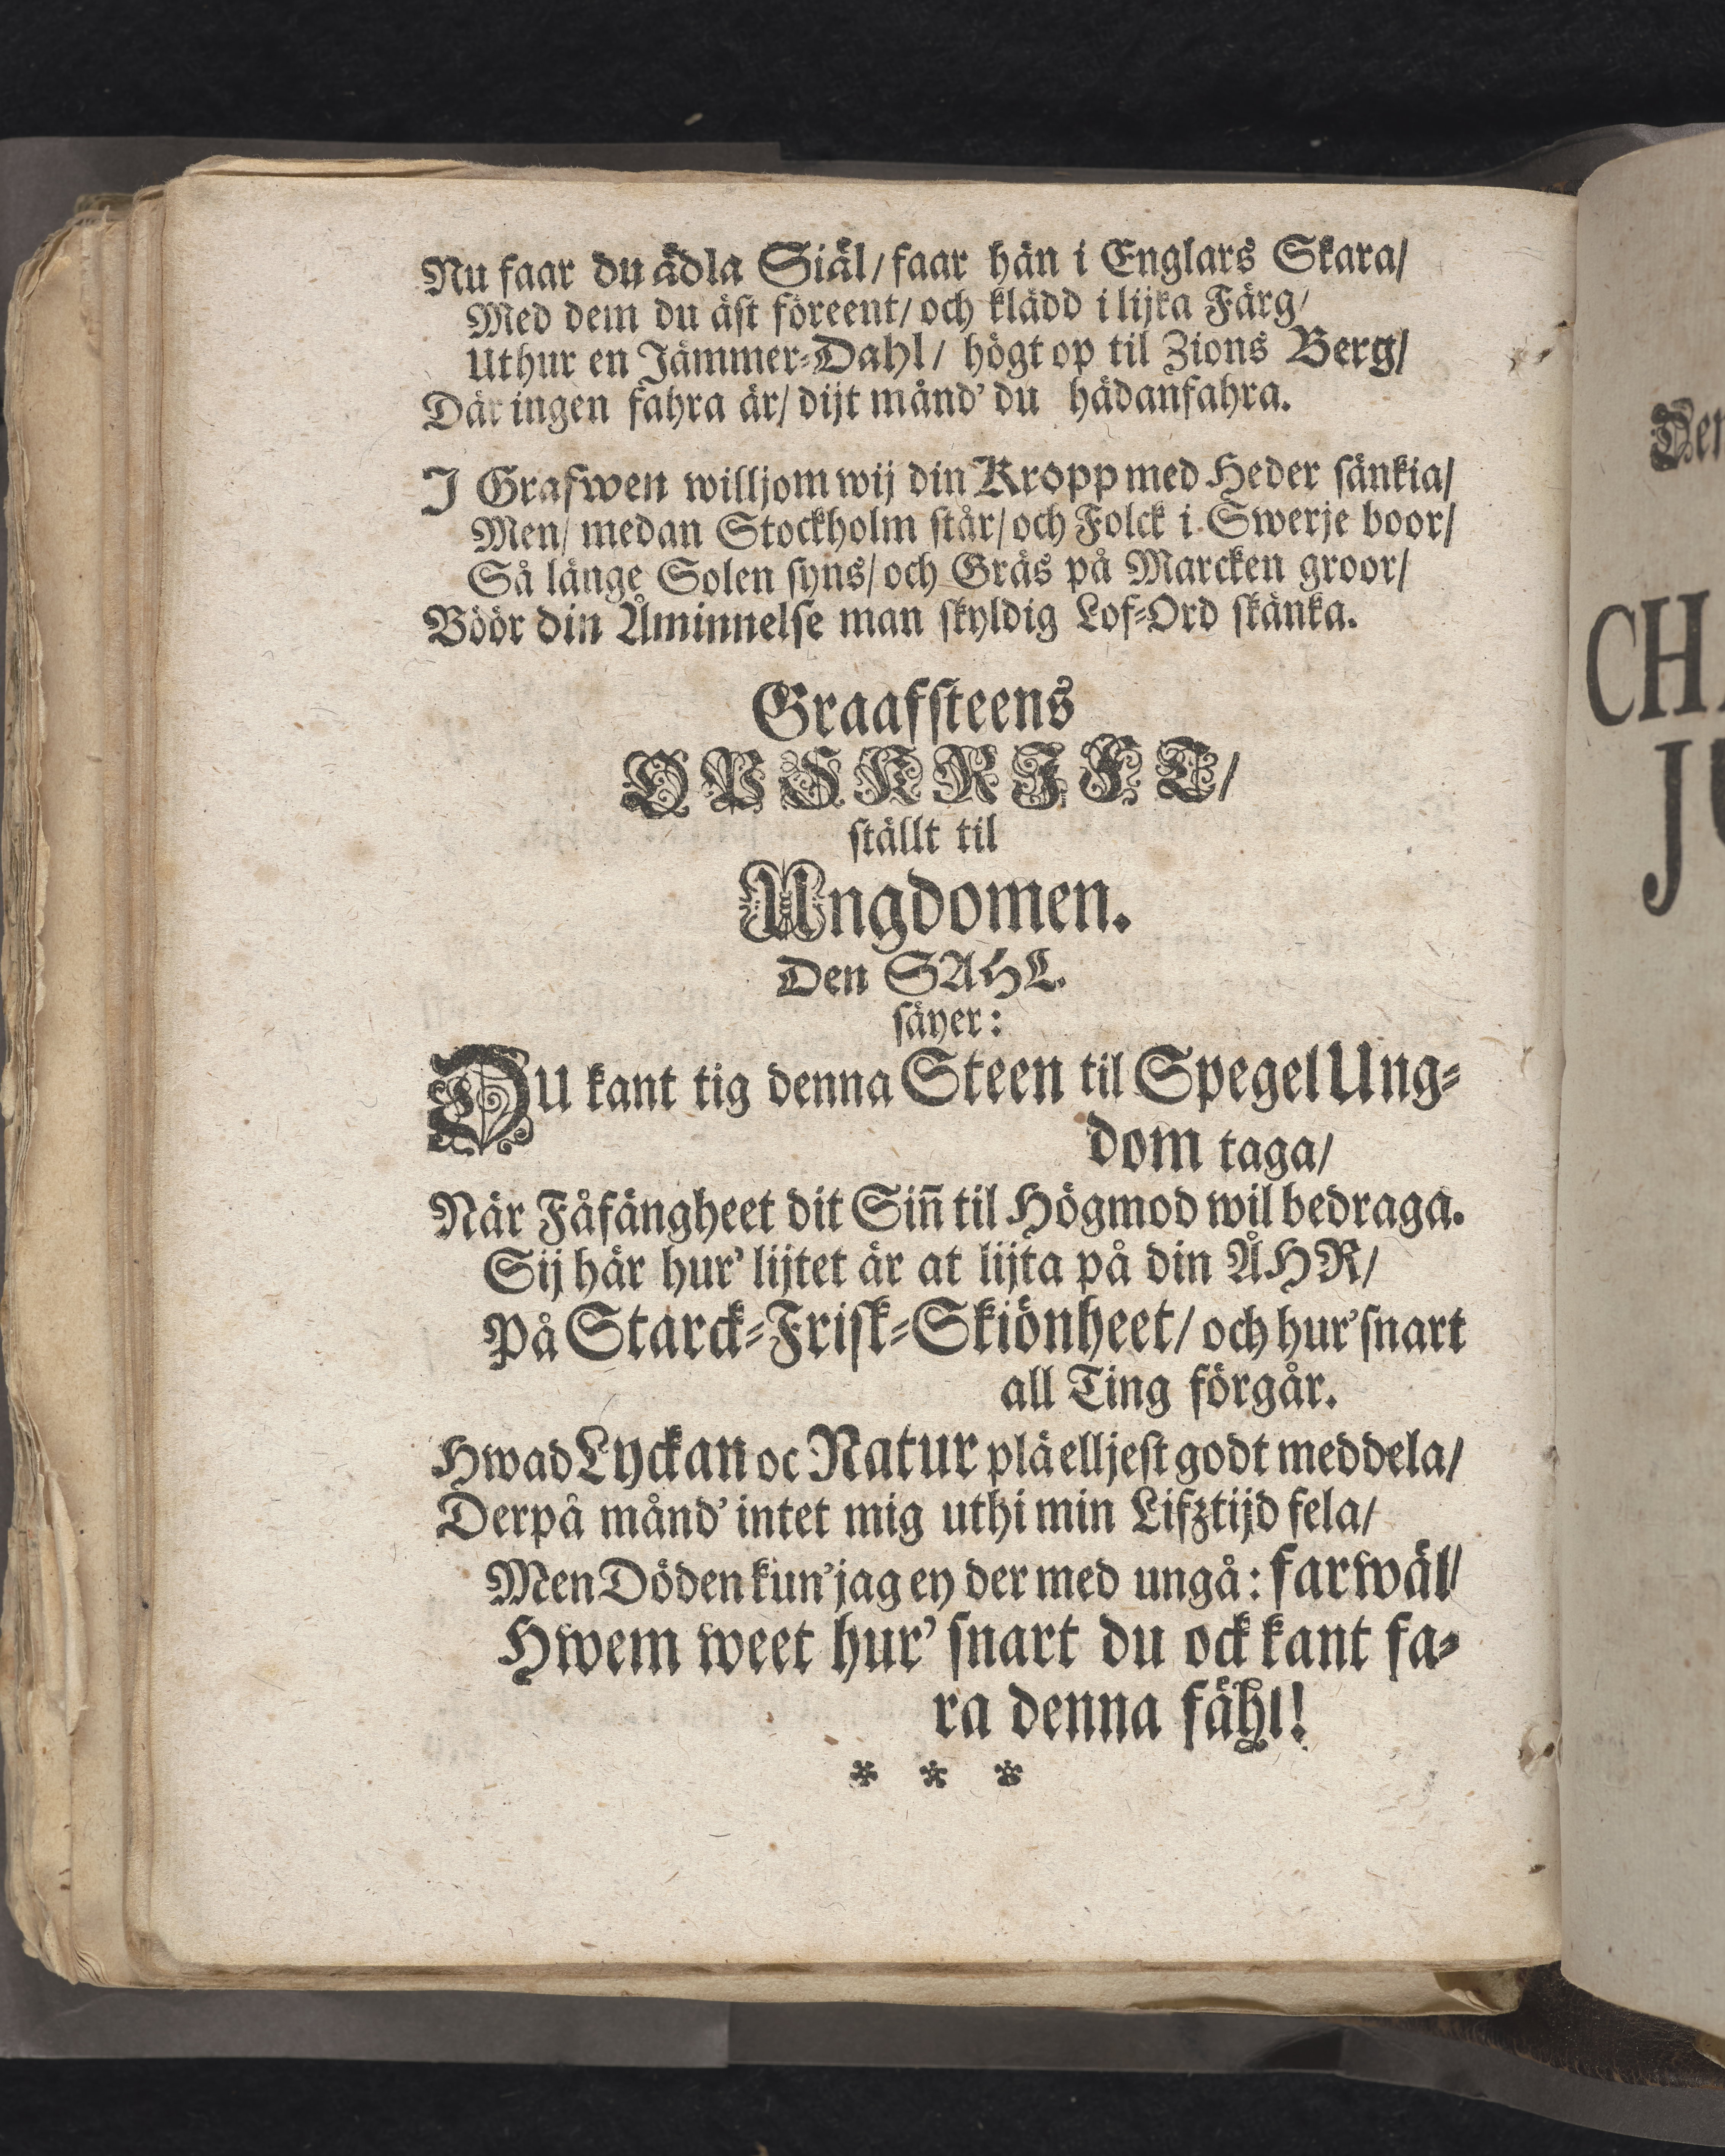 Nu faar du ädla Siäl/ faar hän i Englars Skara/
Med dem du äst föreent/ och klädd i lijka Färg/
Uthur en Jämmer-Dahl/ högt op til Zions Berg/
Där ingen fahra är/ dijt månd' du hädanfahra.
J Grafwen willjom wij din Kropp med Heder sänkia/
Men/ medan Stockholm står/ och Folck i Swerje boor/
Så länge Solen syns/ och Gräs på Marcken groor/
Böör din Åminnelse man skyldig Lof-Ord skänka.
Graafsteens
OPSKRIFT/
ställt til
Ungdomen.
Den SAHL.
säyer:
DU kant tig denna Steen til Spegel Ung-
dom taga/
När Fåfängheet dit Sin̄ til Högmod wil bedraga.
Sij här hur' lijtet är at lijta på din ÅHR/
På Starck-Frisk-Skiönheet/ och hur' snart
all Ting förgår.
Hwad Lyckan oc Natur plä elljest godt meddela/
Derpå månd' intet mig uthi min Lifztijd fela/
Men Döden kun' jag ey der med ungå: farwäl/
Hwem weet hur' snart du ock kant fa-
ra denna fähl!
* * *
Den
CHA
JU